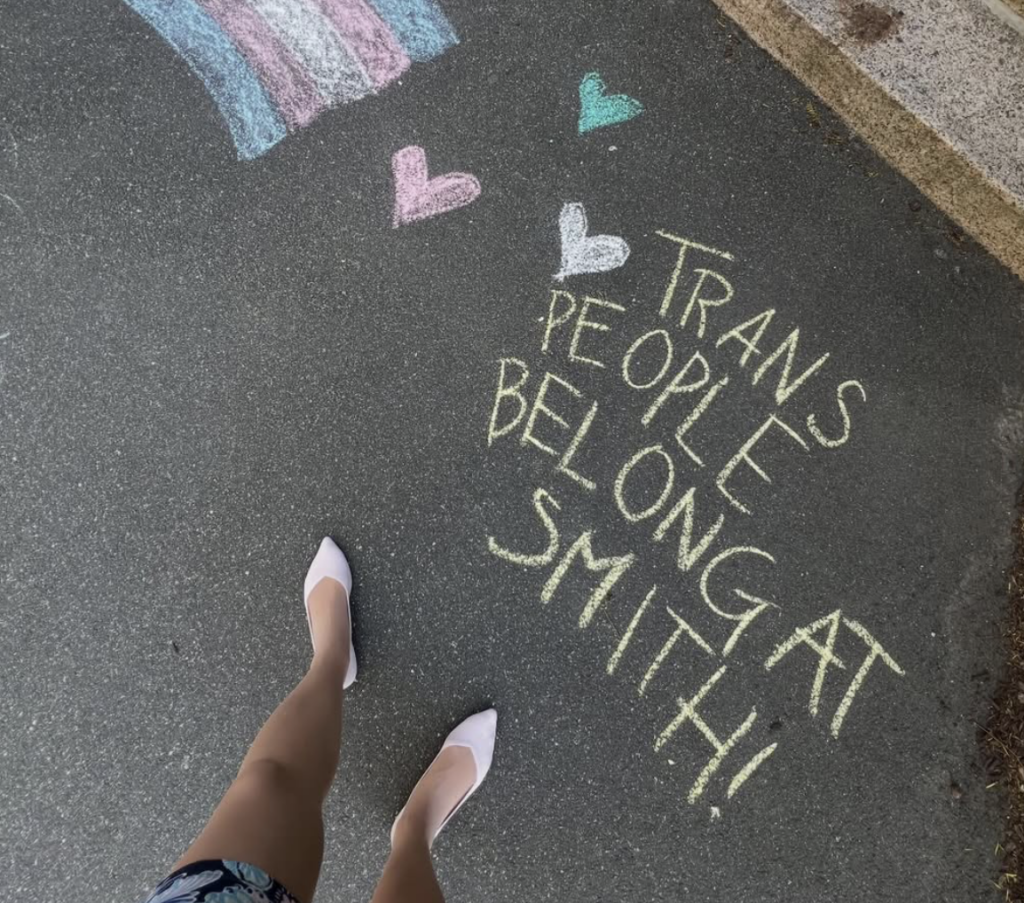 TRANS
PEOPLE
BELONG AT
SMITH!